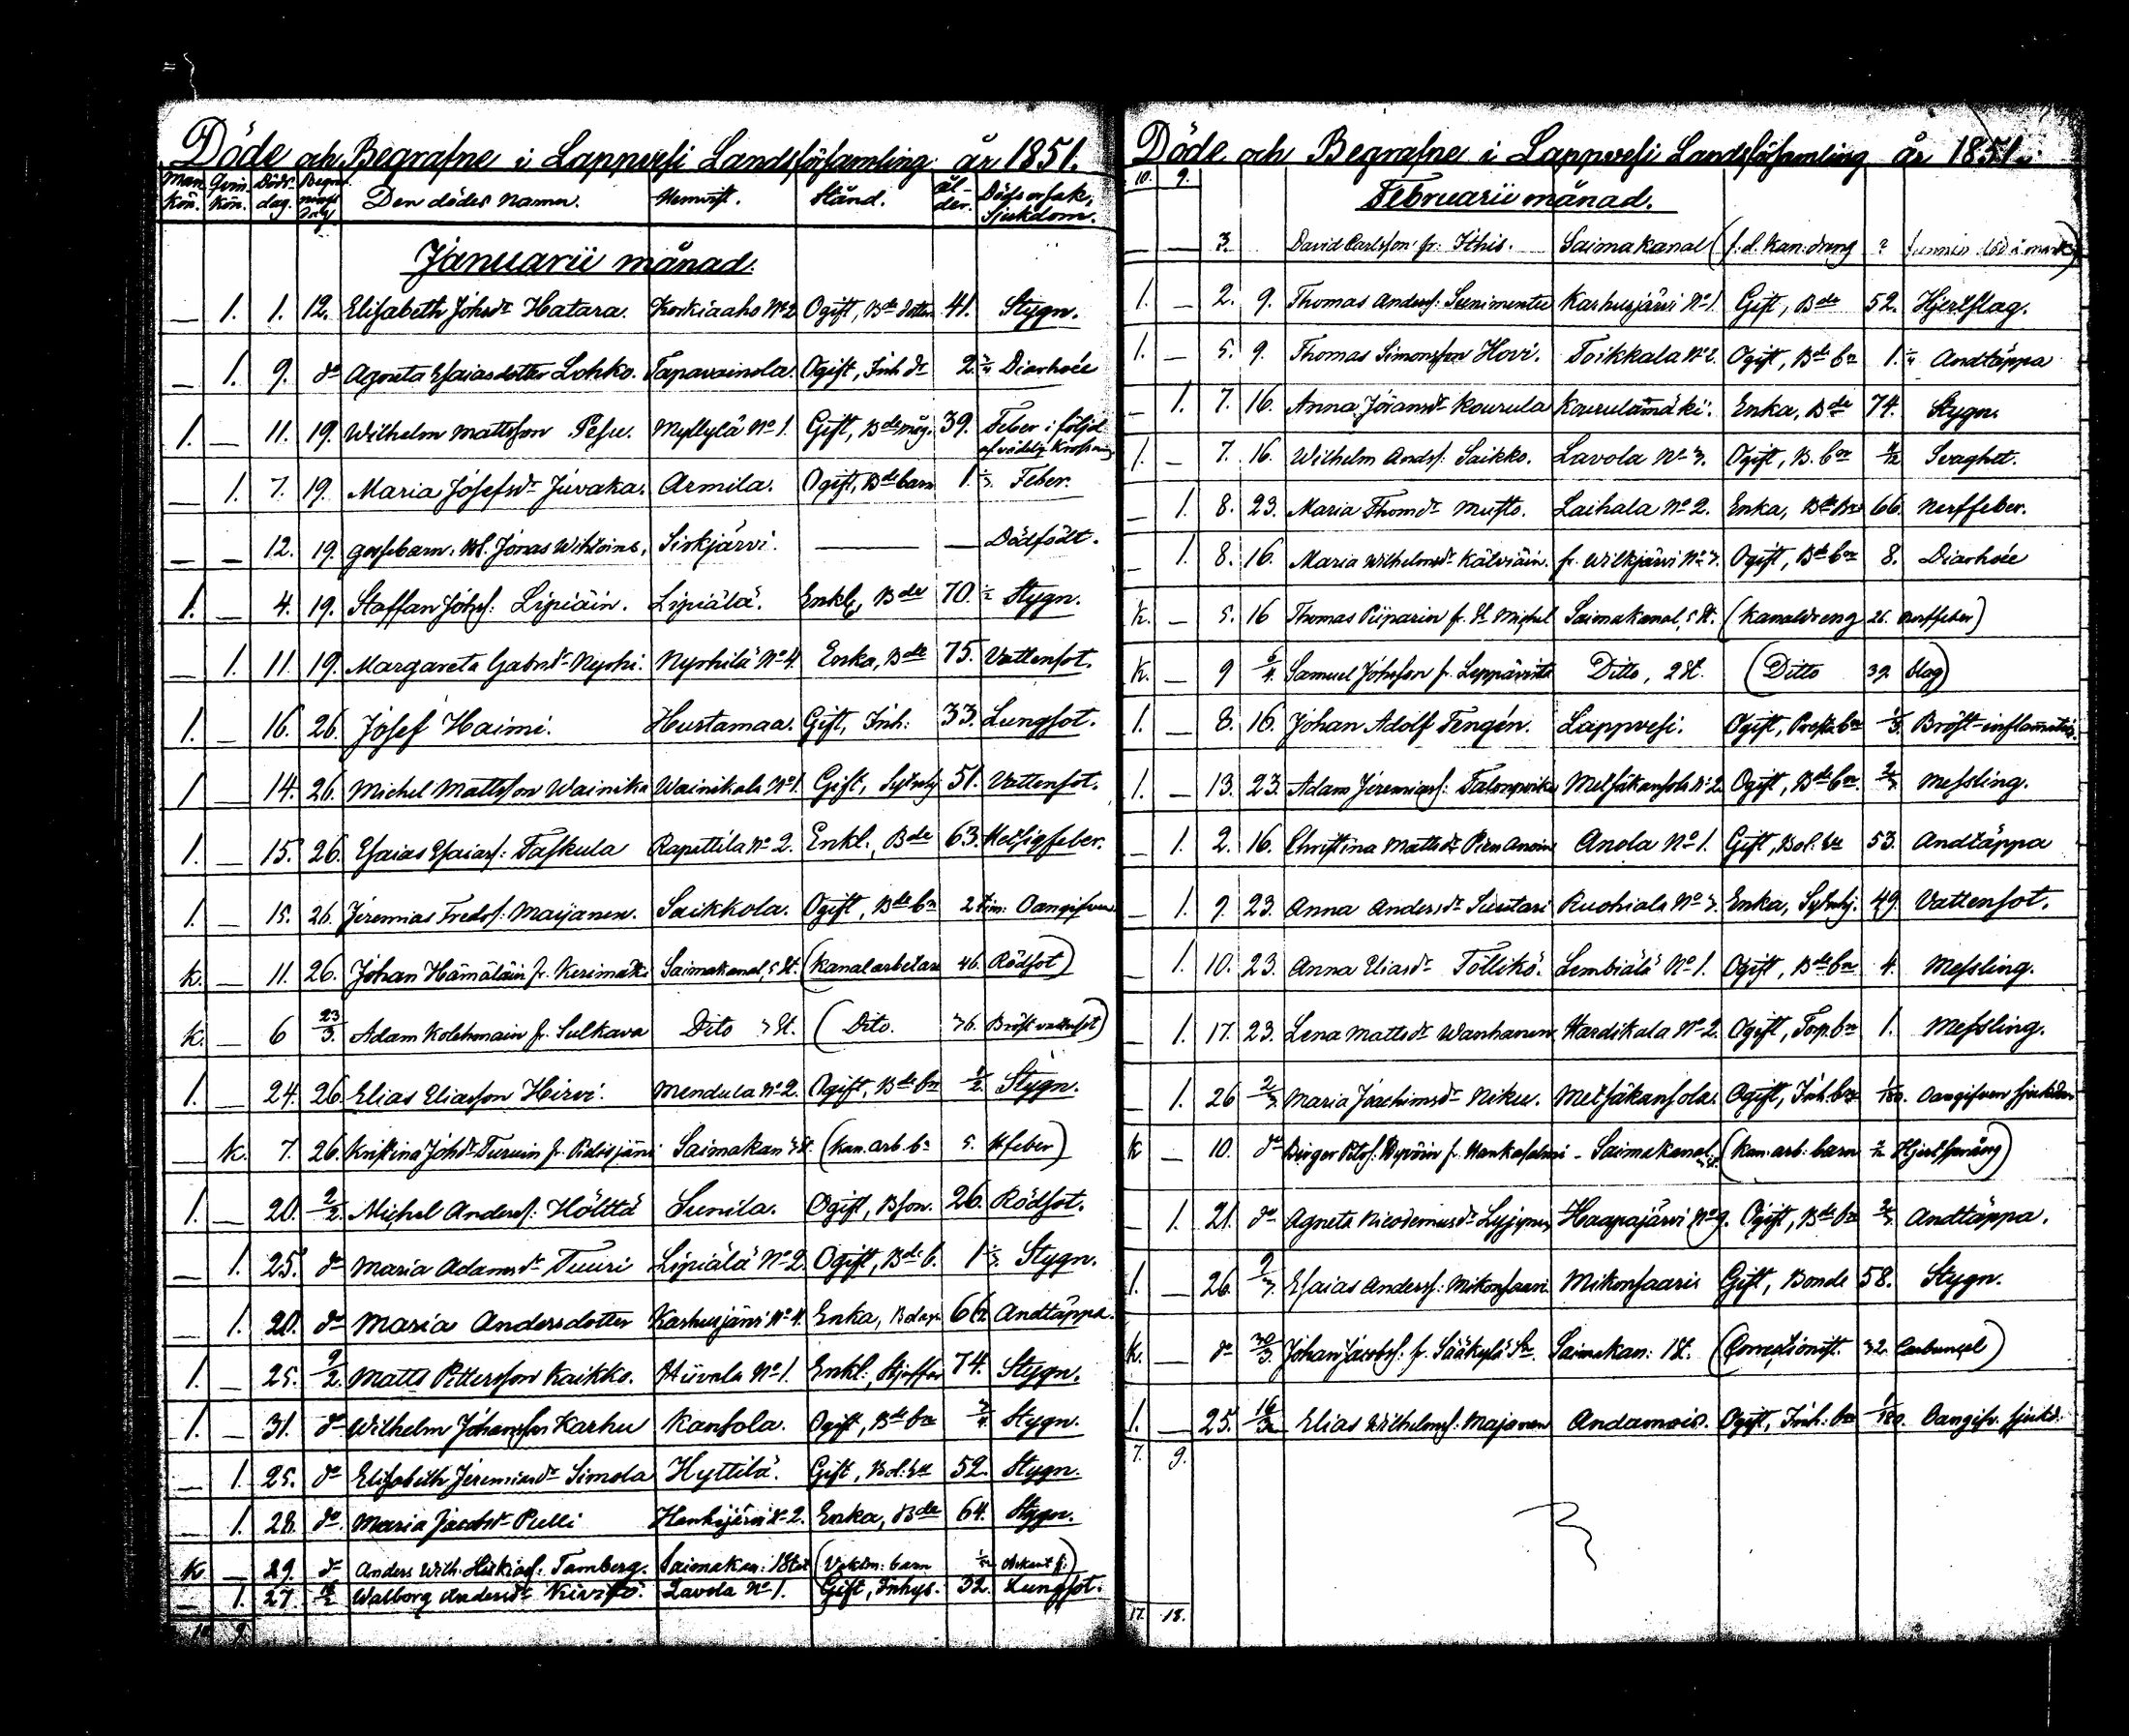 Döde och Begrafne i Lappvesi Landsförsamling år 1851.
Man kön. Qvin kön. Döds dag. Begrafnings dag. Den dödes namn. Hemvist. Stånd. ål-der. Dödsorsak, Sjukdom.
Januarii månad.
— 1. 1. 12. Elisabeth Johsdr Hatara. Korkiaaho No 2 Ogift, Bde dotter 41. Stygn.
— 1. 9. do Agneta Esaiasdotter Lohko. Tapavainola. Ogift, Inh dr 2. Diarhoée
1. — 11. 19. Wilhelm Mattsson Pesu. Myllylä No 1. Gift, Bde måg. 39. Feber i följd af
— 1. 7. 19. Maria Josefsdr Juvaka. Armila. Ogift, Bde barn 1 1/3. Feber.
— — 12. 19. gossebarn. Jonas Sirkjärvi. — — Dödfödt.
1. — 4. 19. Staffan Johss: Lipiäin. Lipiälä. Enkl, Bde 70. Stygn.
— 1. 11. 19. Margareta Gabrsdr Nyrhi. Nyrhilä No 4. Enka, Bde 75. Vattensot.
1. — 16. 26. Josef Haimi. Hurtamaa. Gift, Inh: 33. Lungsot.
1 — 14. 26. Michel Mattsson Wainika Wainikala No 1. Gift, 51. Vattensot.
1. — 15. 26. Esaias Esaiass: Taskula Rapattila No 2. Enkl., Bde 63. Hetsigfeber.
1. — 15. 26. Jeremias Fredrs: Maijanen. Saikkola. Ogift, Bde bn 2 tim: Oangifven.
k. — 11. 26. Johan Hämäläin fr. Kerimäki Saimakanal, 5 St. (kanalarbetare 46. Rödsot)
k. — 6 23/3. Adam Kolehmain fr. Sulkava Dito 3 St. (Dito. 36. Bröst vattusot)
1. — 24. 26. Elias Eliasson Hirvi. Mendula No 2. Ogift, Bde bn 1/2. Stygn.
— k. 7. 26. Kristina Johdr fr. Saimakan 3 St. (Kan. arb. bn 5. feber)
1. — 20. 2/2. Michel Anderss: Hölttä Sunila. Ogift, Bson. 26. Rödsot.
— 1. 25. do Maria Adamsdr Tuuri Lipiälä No 2. Ogift, Bde b. 1 1/3. Stygn.
— 1. 20. do Maria Andersdotter Karhusjärvi No 4. Enka, 66. Andtäppa.
1. — 25. 9/2. Matts Pettersson Kaikko. Hiivala No 1. Enkl., 74. Stygn.
1. — 31. do Wilhelm Johansson Karhu Kansola. Ogift, Bde bn 3/4. Stygn.
— 1. 25. do Elisabeth Jeremiasdr Simola Hyttilä. Gift, Bol: 52. Stygn.
— 1. 28. do. Maria Jacobsdr Pulli Hanhijärvi No 2. Enka, Bde 64. Stygn.
k — 29. do Anders Wilh. Tamberg. Saimakan: 1 Stat (Vaktm: barn
— 1. 27. 16/2 Walborg Andersdr Lavola No 1. Gift, Inhys. 32. Lungsot.
10 9.
Döde och Begrafne i Lappvesi Landsförsamling år 1851.
10. 9.
Februarii månad.
— — 3. David Carlsson fr: Ithis. Saimakanal (f. d. kan. dreng ?
1. — 2. 9. Thomas Anderss: Karhusjärvi No 1. Gift, Bde 52. Hjertslag.
1. — 5. 9. Thomas Simonsson Hovi. Toikkala No 2. Ogift, Bde bn 1. Andtäppa
— 1. 7. 16. Anna Göransdr Kourula Kourulamäki. Enka, Bde 74. Stygn.
1. — 7. 16. Wilhelm Ands: Saikko. Lavola No 3. Ogift, B. bn Svaghet.
— 1. 8. 23. Maria Thomdr Musto. Laihala No 2. Enka, 66. Nerffeber.
— 1. 8. 16. Maria Wilhelmsdr Kälviäin. fr. Wilkjärvi No 3. Ogift, Bde bn 8. Diarhoée
k. — 5. 16 Thomas Piiparin fr. St. Michel Saimakanal, 5 St. (Kanaldreng 26. Nerffeber)
k. — 9 5/4. Samuel Johsson fr. Leppävirta Ditto, 2 St. (Ditto 39. Slag)
1. — 8. 16. Johan Adolf Tengén. Lappvesi. Ogift, 1/3. Bröst-inflamation.
1. — 13. 23. Adam Jeremiass: Talonpoika Metsäkansola No 2. Ogift, Bde bn. 2/3. Messling.
— 1. 2. 16. Christina Mattsdr Anola No 1. Gift, Bol. 53. Andtäppa
— 1. 9. 23. Anna Andersdr Suutari Ruohiala No 3. Enka, 49. Vattensot.
— 1. 10. 23. Anna Eliasdr Töllikö. Lembiälä No 1. Ogift, Bde bn 4. Messling.
— 1. 17. 23. Lena Mattsdr Wanhanen Hardikala No 2. Ogift, Torp. bn 1. Messling.
— 1. 26 2/3. Maria Joachimsdr Niku. Metsäkansola. Ogift, Inh. bn 1/180. Oangifven sjukdom
k — 10. do Birger fr. Hankasalmi - Saimakanal. (Kan: arb: barn Hjertsprång)
— 1. 21. do Agneta Nicodemusdr Haapajärvi No 9. Ogift, Bde bn 2/3. Andtäppa.
1. — 26. 9/3. Esaias Anderss: Mikonsaari. Mikonsaari Gift, Bonde 58. Stygn.
k. — do 30/3. Johan Jacobss. fr. Sääkylä Saimakan: 1 St. (Correctionist. 32. Carbunçel)
1. — 25. 16/3. Elias Wilhelmss: Majanen Andamois. Ogift, Inh: bn 1/180. Oangifv. sjukd.
7. 9.
17. 18.